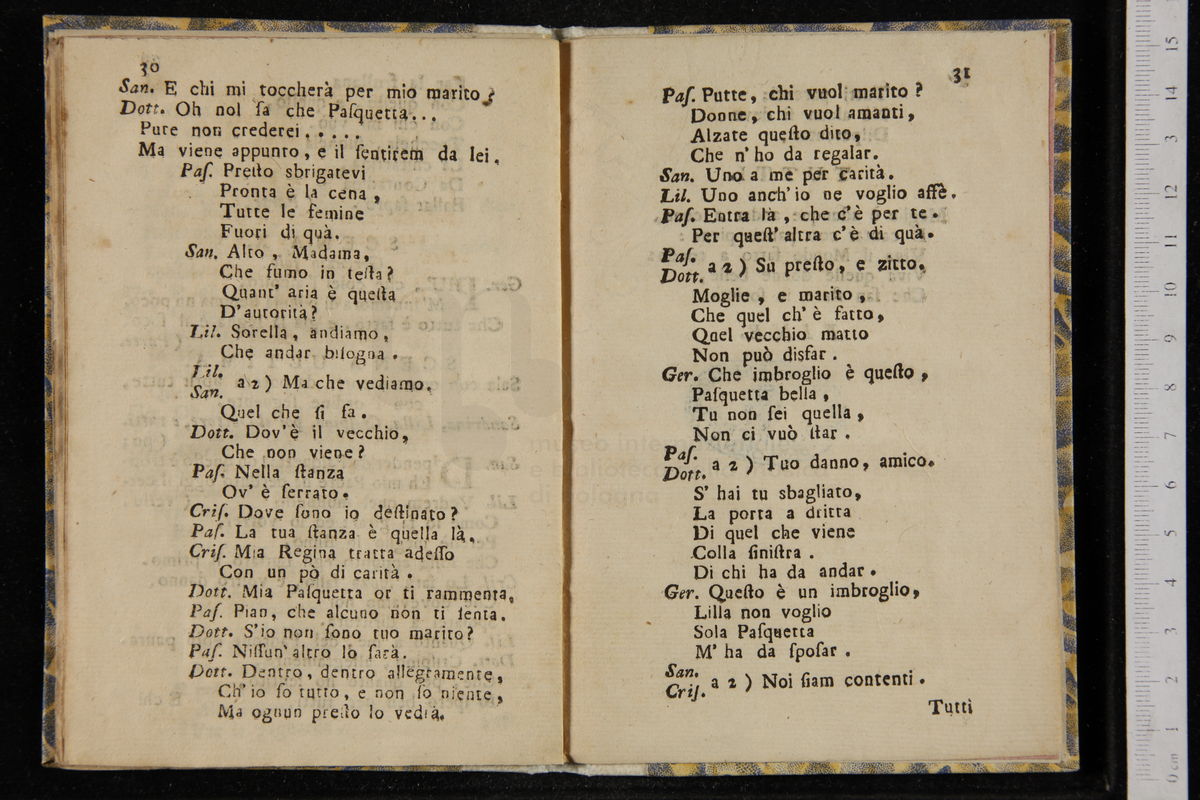 30
San. E chi mi toccherà per mio marito?
Dott. Oh nol ſa che Paſquetta...
Pure non crederei.....
Ma viene appunto, e il ſentirem da lei.
Paſ. Preſto sbrigatevi
Pronta è la cena,
Tutte le femine
Fuori di quà.
San. Alto, Madama,
Che fumo in teſta?
Quant' aria è queſta
D'autorità?
Lil. Sorella, andiamo,
Che andar biſogna.
Lil.
San. a 2) Ma che vediamo.
Quel che ſi fa.
Dott. Dov'è il vecchio,
Che non viene?
Paſ. Nella ſtanza
Ov' è ſerrato.
Criſ. Dove ſono io deſtinato?
Paſ. La tua ſtanza è quella là.
Criſ. Mia Regina tratta adeſſo
Con un pò di carità.
Dott. Mia Paſquetta or ti rammenta.
Paſ. Pian, che alcuno non ti ſenta.
Dott. S'io non ſono tuo marito?
Paſ. Niſſun' altro lo ſarà.
Dott. Dentro, dentro allegramente,
Ch' io ſo tutto, e non ſo niente,
Ma ognun preſto lo vedrà.
31
Paſ. Putte, chi vuol marito?
Donne, chi vuol amanti,
Alzate queſto dito,
Che n' ho da regalar.
San. Uno a me per carità.
Lil. Uno anch' io ne voglio affè.
Paſ. Entra là, che c'è per te.
Per queſt' altra c'è di quà.
Paſ.
Dott. a 2) Su preſto, e zitto.
Moglie, e marito,
Che quel ch' è fatto,
Quel vecchio matto
Non può disfar.
Ger. Che imbroglio è queſto,
Paſquetta bella,
Tu non ſei quella,
Non ci vuò ſtar.
Paſ.
Dott. a 2) Tuo danno, amico.
S' hai tu sbagliato,
La porta a dritta
Di quel che viene
Colla ſiniſtra.
Di chi ha da andar.
Ger. Queſto è un imbroglio,
Lilla non voglio
Sola Paſquetta
M' ha da ſpoſar.
San.
Criſ. a 2) Noi ſiam contenti.
Tutti